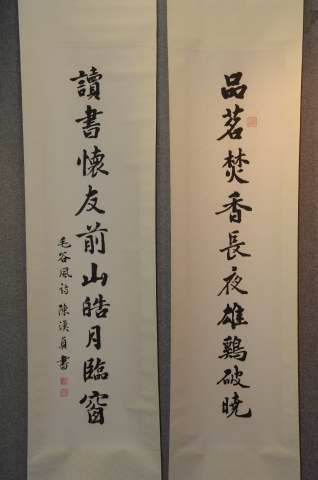 品茗焚香長夜雄鷄破曉
讀書懷友前山皓月臨窗
毛谷风诗 陳漢貞書